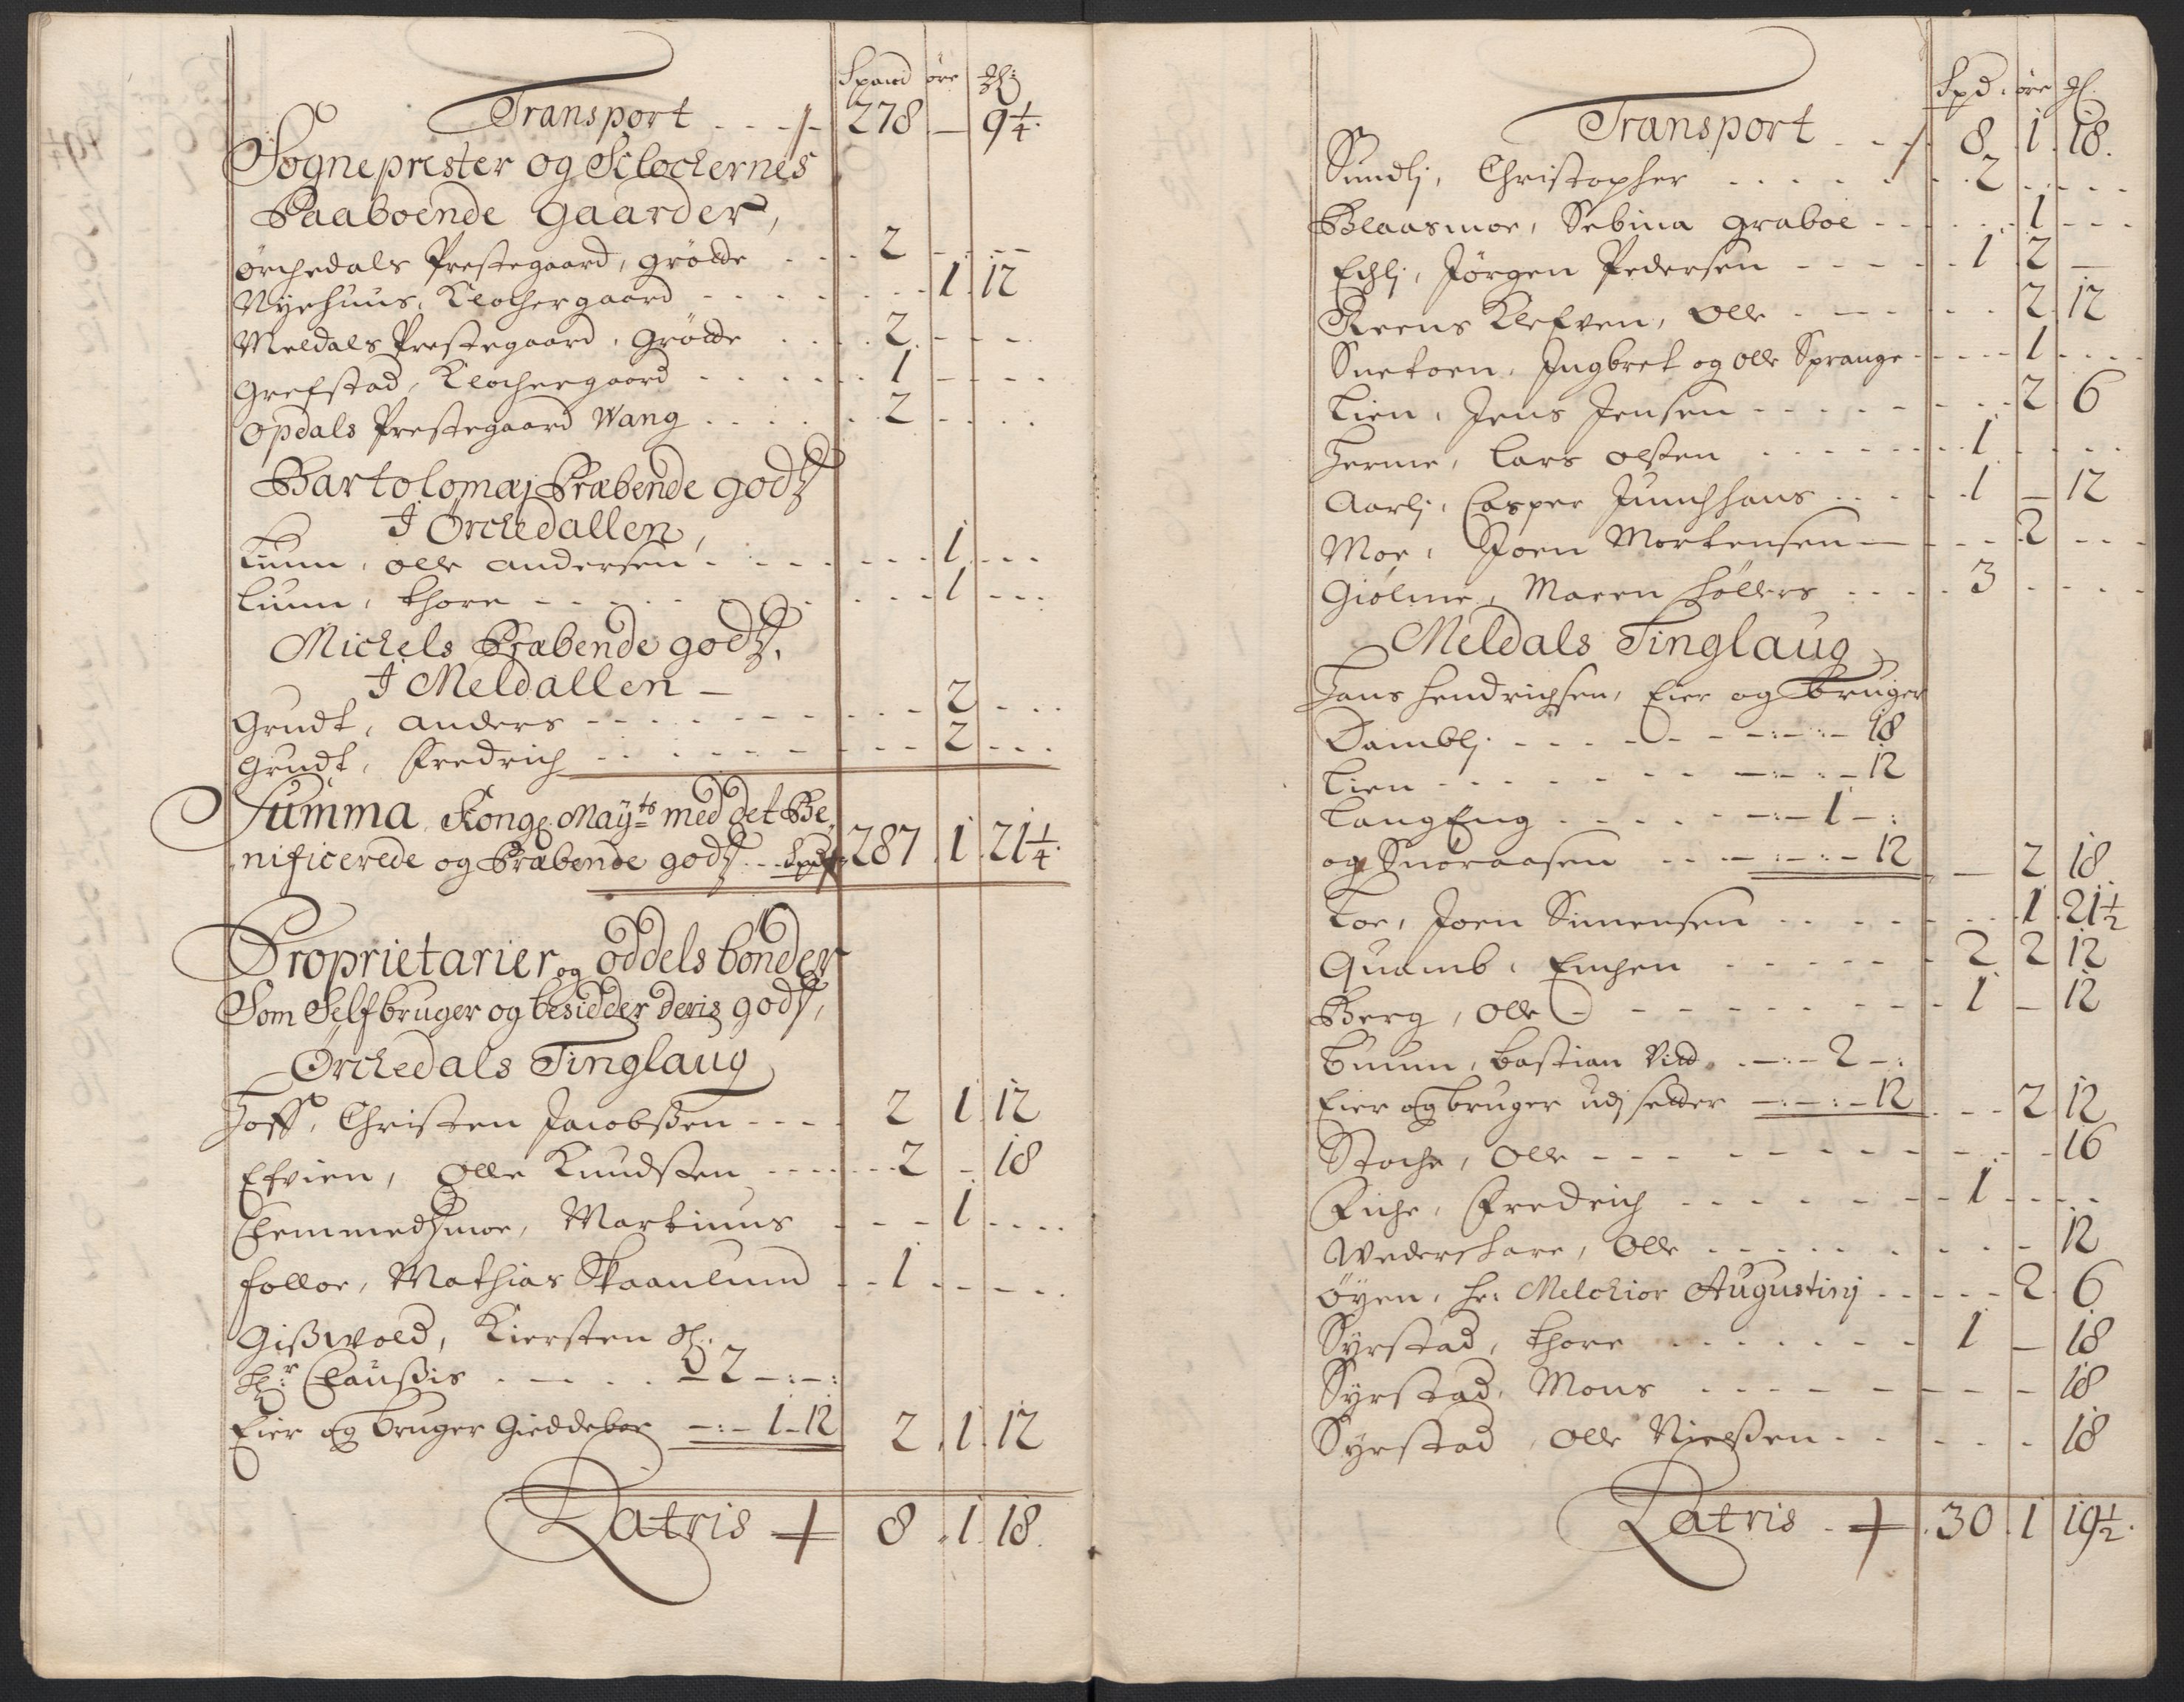 Spand öre
Transport 278 — 9 1/4
Sogneprester og Klockernes
Paaboende gaarder,
Örchedals Prestegaard, Grötte 2 - -
Nyehuus, Klochergaard 1 12
Meldals Prestegaard, Grötte 2 - -
Grefstad, Klochergaard 1 - -
Opdals Prestegaard Wang 2 - -
Bartolomæj Præbende godtz
I Orchedallen,
Lium, Olle Andersen 1
Lium, Thore 1
Michels Præbende godtz,
I Meldallen
Grudt, Anders 2
Grudt, Fredrich 2
Summa Kong: May:ts med det Be-
nificerede og Præbende godtz Spd 287 1 21 1/4
Proprietarier og oddels bönder
Som Self bruger og besidder deris godtz,
Orchedals Tinglaug
Hoff, Christen Jacobßen 2 1 12
Efvien, Olle Knudsten 2 - 18
Clemmedsmoe, Martinus 1
Folloe, Mathias Skaanlund 1
Gißwold, Kiersten
Clausis 2
Eier og bruger Gieddeboe 1-12 2 1 12
Latris 8 1 18

Spd. öre
Transport 8 1 18
Sundlj, Christopher 2
Blaasmoe, Sebina Graboe 1
Echlj, Jörgen Pedersen 1 2 —
Reens Klefven, Olle 2 12
Snetoen, Ingbret og Olle Sprauge 1
Lien, Jens Jensen 2 6
Jerme, Lars Olsten 1
Aarlj, Casper Junchhans 1 — 12
Moe, Joen Mortensen 2
Giölme, Maren Höllers 3
Meldals Tinglaug
Hans Hendrichsen, Eier og bruger
Damblj 18
Lien 12
LangEng 1
og Snoraasen 12 — 2 18
Toe, Joen Simensen 1 21 1/2
Quamb, Enchen 2 2 12
Berg, Olle 1 — 12
Buum, Bastian Vild 2
Eier og bruger udj setter 12 2 12
Stoche, Olle 16
Fiche, Fredrich 1
Wederskare, Olle 12
Öyen, Hr: Melchior Augustinj 2 6
Syrstad, Thore 1 — 18
Syrstad, Mons 18
Syrstad, Olle Nielßen 18
Latris 30 1 19 1/2